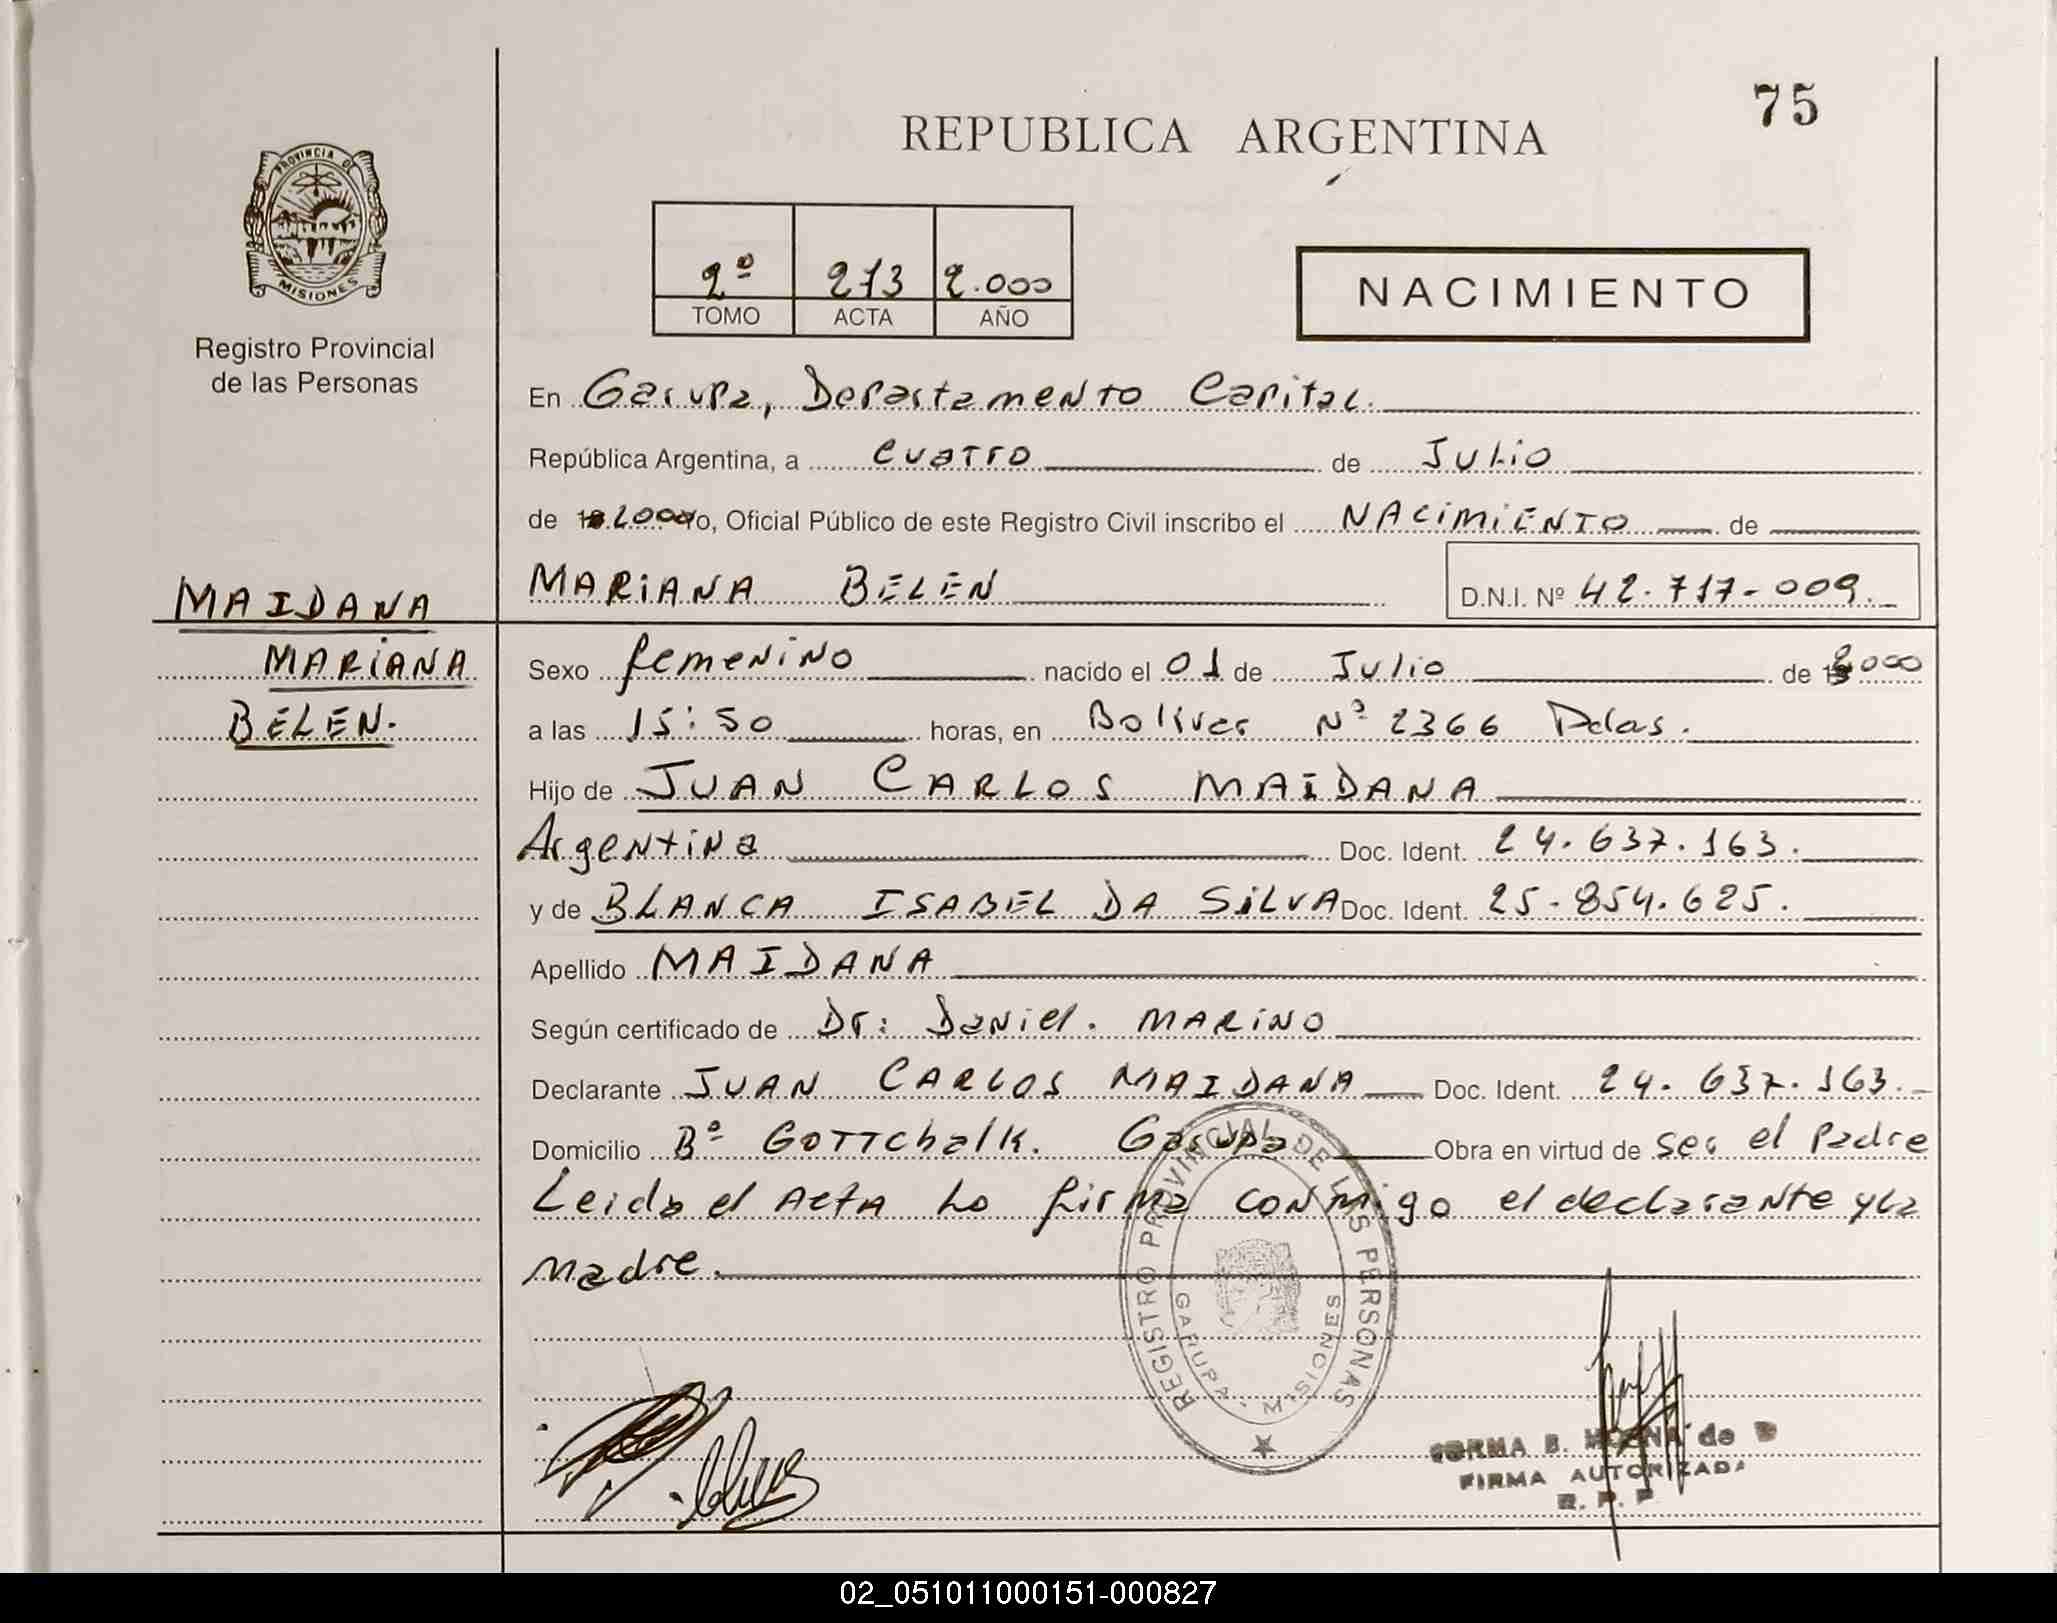 75
REPUBLICA ARGENTINA
PROVINCIA DE
MISIONES
Registro Provincial
de las Personas
2º 213 2.000
TOMO ACTA AÑO
NACIMIENTO
En Garupa, Departamento Capital.
República Argentina, a cuatro de Julio
de 2000 Yo, Oficial Público de este Registro Civil inscribo el NACIMIENTO de
MARIANA BELEN D.N.I. Nº 42.717-009.
MAIDANA
MARIANA
BELEN.
Sexo femenino nacido el 01 de Julio de 2000
a las 15:50 horas, en Bolivar Nº 2366 Pdas.
Hijo de JUAN CARLOS MAIDANA
Argentina Doc. Ident. 24.637.163.
y de BLANCA ISABEL DA SILVA Doc. Ident. 25.854.625.
Apellido MAIDANA
Según certificado de Dr: Daniel. MARINO
Declarante JUAN CARLOS MAIDANA Doc. Ident. 24.637.163.-
Domicilio Bº GOTTChalk. Garupa Obra en virtud de ser el Padre
Leida el Acta Lo firma conmigo el declarante y la
madre.
REGISTRO PROVINCIAL DE LAS PERSONAS
GARUPA - MISIONES
B. de
FIRMA AUTORIZADA
R. P. P.
02_051011000151-000827